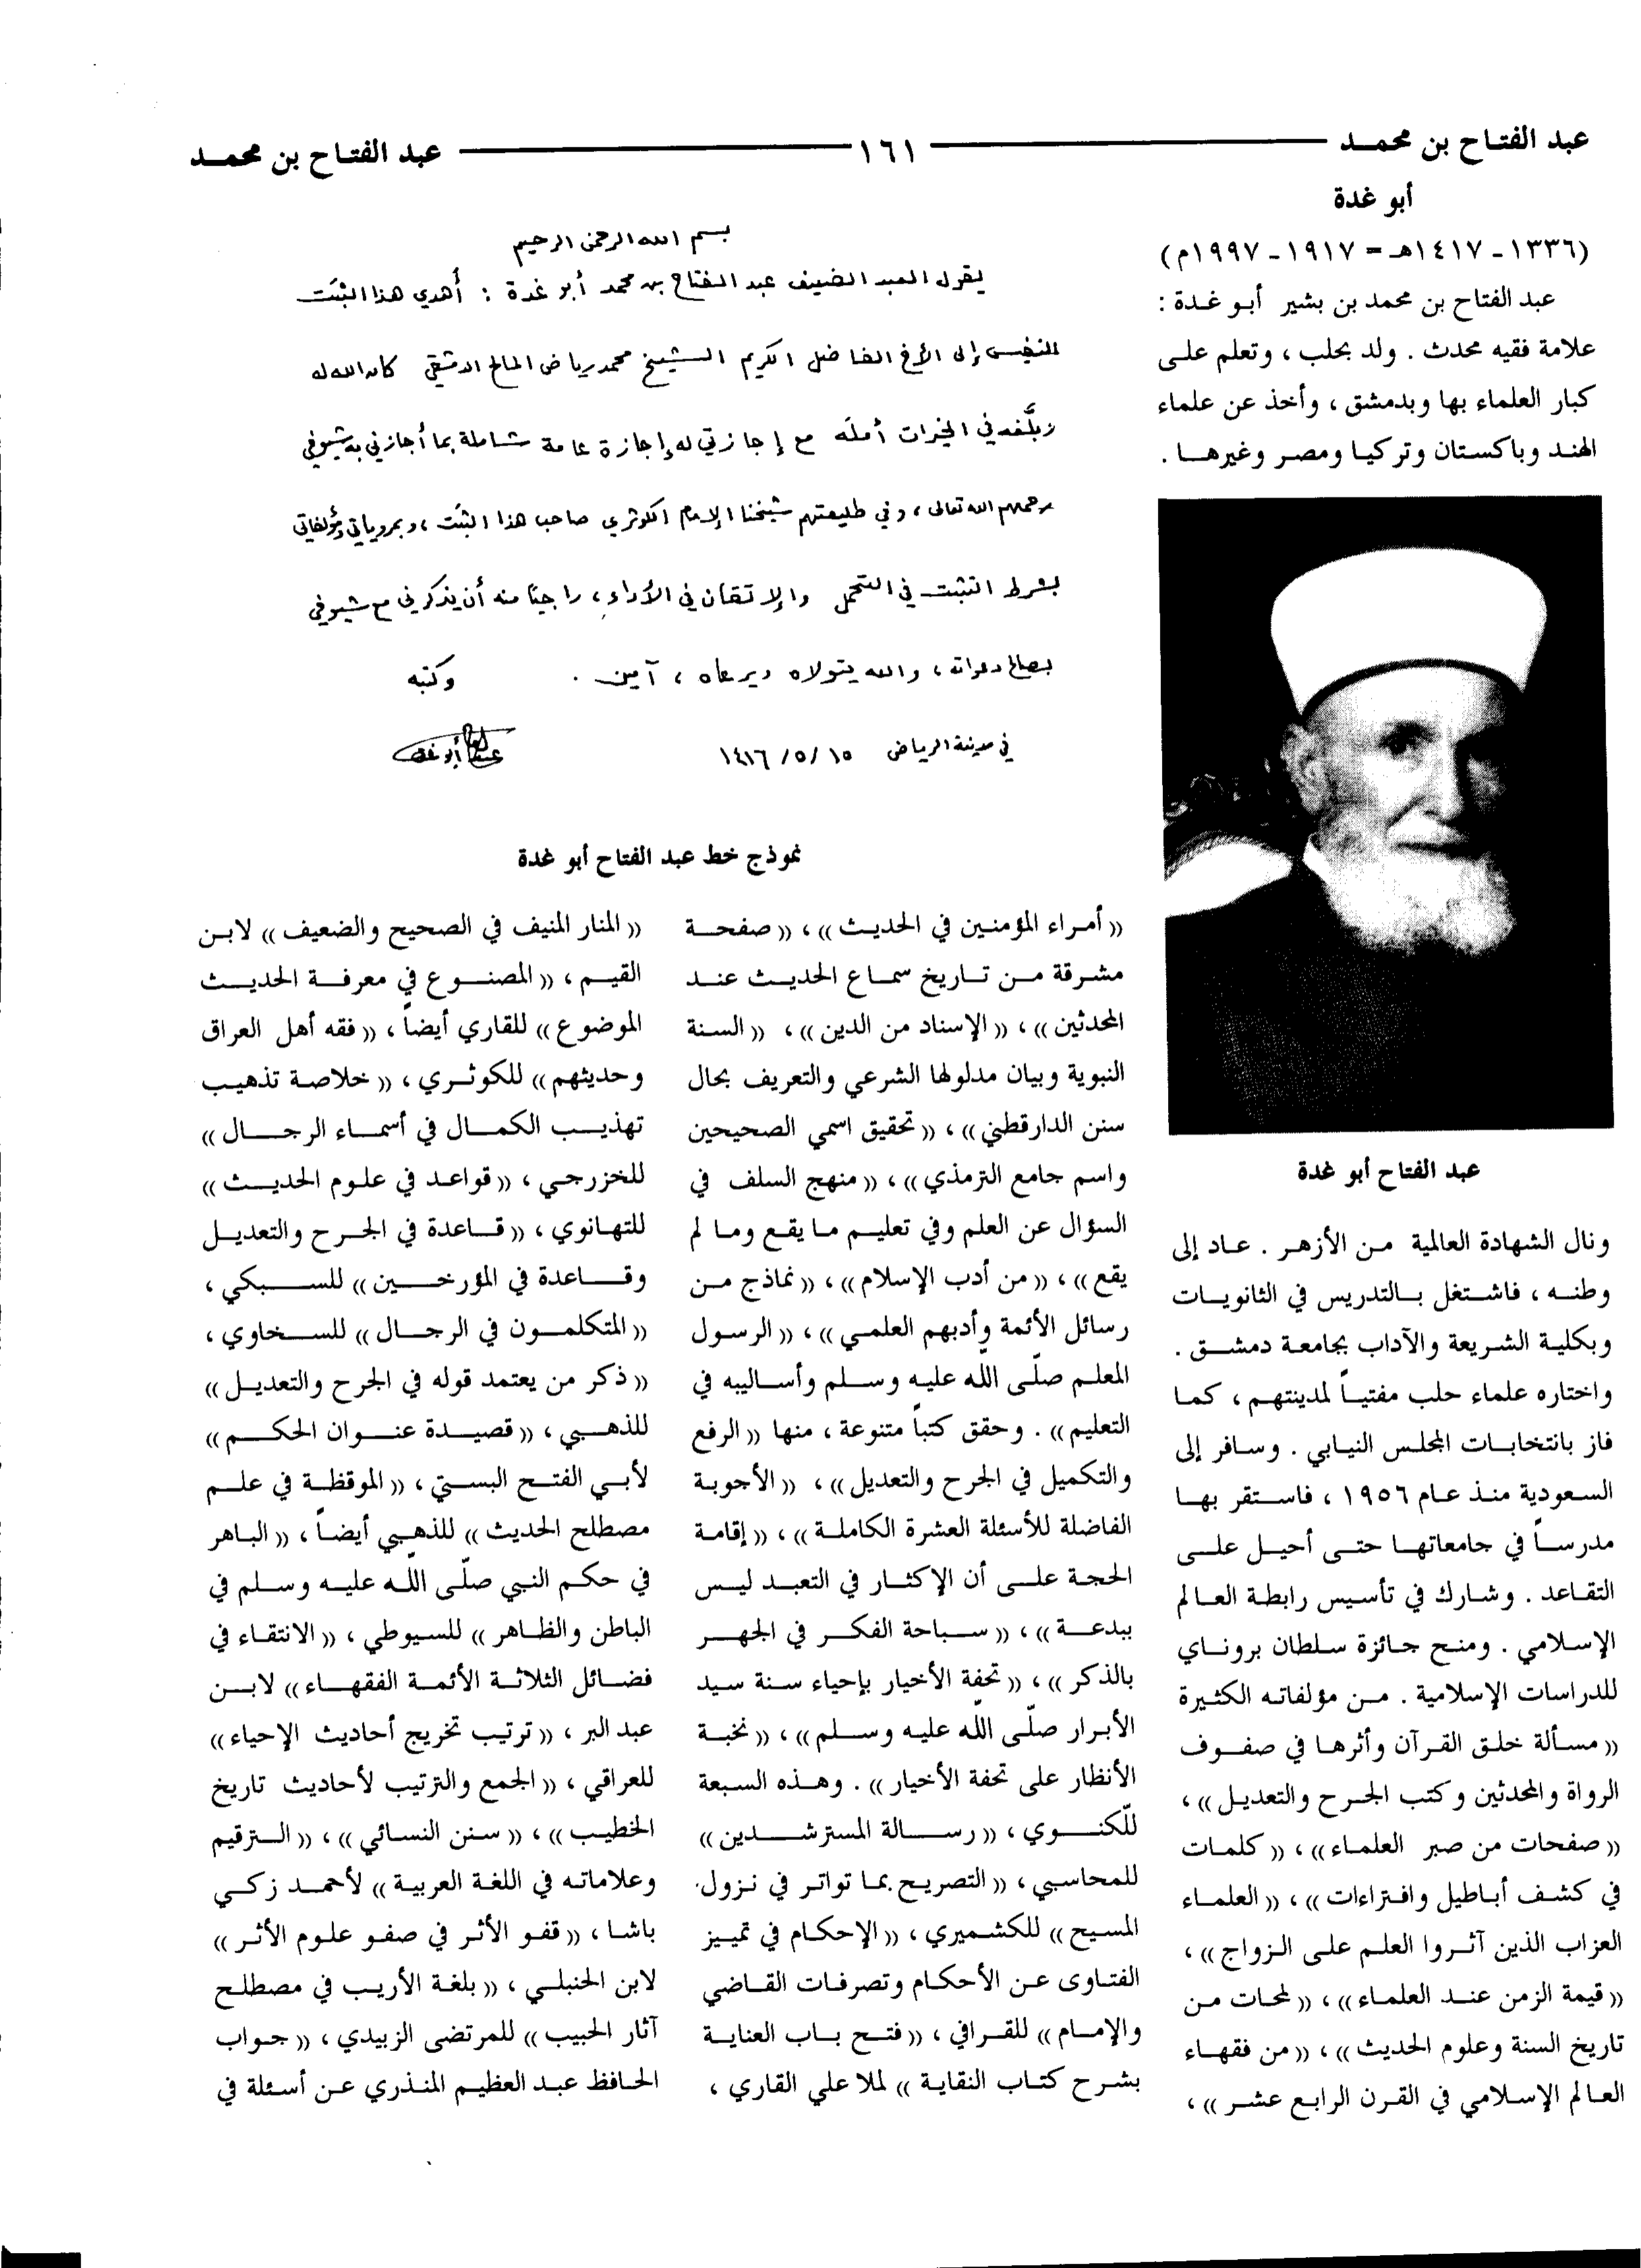 عبد الفتاح بن محمد
١٦١
عبد الفتاح بن محمد
أبو غدة
(١٣٣٦ - ١٤١٧هـ = ١٩١٧ - ١٩٩٧م)
عبد الفتاح بن محمد بن بشير أبو غدة :
علامة فقيه محدث . ولد بحلب ، وتعلم على
كبار العلماء بها وبدمشق ، وأخذ عن علماء
الهند وباكستان وتركيا ومصر وغيرها .
عبد الفتاح أبو غدة
ونال الشهادة العالمية من الأزهر . عاد إلى
وطنه ، فاشتغل بالتدريس في الثانويات
وبكلية الشريعة والآداب بجامعة دمشق .
واختاره علماء حلب مفتياً لمدينتهم ، كما
فاز بانتخابات المجلس النيابي . وسافر إلى
السعودية منذ عام ١٩٥٦ ، فاستقر بها
مدرساً في جامعاتها حتى أحيل على
التقاعد . وشارك في تأسيس رابطة العالم
الإسلامي . ومنح جائزة سلطان بروناي
للدراسات الإسلامية . من مؤلفاته الكثيرة
« مسألة خلق القرآن وأثرها في صفوف
الرواة والمحدثين وكتب الجرح والتعديل » ،
« صفحات من صبر العلماء » ، « كلمات
في كشف أباطيل وافتراءات » ، « العلماء
العزاب الذين آثروا العلم على الزواج » ،
« قيمة الزمن عند العلماء » ، « لمحات من
تاريخ السنة وعلوم الحديث » ، « من فقهاء
العالم الإسلامي في القرن الرابع عشر » ،
بسم الله الرحمن الرحيم
يقول العبد الضعيف عبد الفتاح بن محمد أبو غدة : أُهدي هذا الثَّبَت
النفيس إلى الأخ الفاضل الكريم الشيخ محمد رياض المالح الدمشقي كان الله له
وبلَّغه في الخيرات أملَه مع إجازتي له إجازة عامة شاملة بما أجازني به شيوخي
رحمهم الله تعالى ، وفي طليعتهم شيخنا الإمام الكوثري صاحب هذا الثبت ، وبمروياتي ومؤلفاتي
بشرط التثبت في التحمل والإتقان في الأداء ، راجيًا منه أن يذكرني مع شيوخي
بصالح دعواته ، والله يتولاه ويرعاه ، آمين . وكتبه
في مدينة الرياض ١٥ /٥ /١٤١٦ عبد الفتاح أبو غدة
نموذج خط عبد الفتاح أبو غدة
« أمراء المؤمنين في الحديث » ، « صفحة
مشرقة من تاريخ سماع الحديث عند
المحدثين » ، « الإسناد من الدين » ، « السنة
النبوية وبيان مدلولها الشرعي والتعريف بحال
سنن الدارقطني » ، « تحقيق اسمي الصحيحين
واسم جامع الترمذي » ، « منهج السلف في
السؤال عن العلم وفي تعليم ما يقع وما لم
يقع » ، « من أدب الإسلام » ، « نماذج من
رسائل الأئمة وأدبهم العلمي » ، « الرسول
المعلم صلّى اللّه عليه وسلم وأساليبه في
التعليم » . وحقق كتباً متنوعة ، منها « الرفع
والتكميل في الجرح والتعديل » ، « الأجوبة
الفاضلة للأسئلة العشرة الكاملة » ، « إقامة
الحجة على أن الإكثار في التعبد ليس
ببدعة » ، « سباحة الفكر في الجهر
بالذكر » ، « تحفة الأخيار بإحياء سنة سيد
الأبرار صلّى اللّه عليه وسلم » ، « نخبة
الأنظار على تحفة الأخيار » . وهذه السبعة
للّكنوي ، « رسالة المسترشدين »
للمحاسبي ، « التصريح بما تواتر في نزول
المسيح » للكشميري ، « الإحكام في تمييز
الفتاوى عن الأحكام وتصرفات القاضي
والإمام » للقرافي ، « فتح باب العناية
بشرح كتاب النقاية » لملا علي القاري ،
« المنار المنيف في الصحيح والضعيف » لابن
القيم ، « المصنوع في معرفة الحديث
الموضوع » للقاري أيضاً ، « فقه أهل العراق
وحديثهم » للكوثري ، « خلاصة تذهيب
تهذيب الكمال في أسماء الرجال »
للخزرجي ، « قواعد في علوم الحديث »
للتهانوي ، « قاعدة في الجرح والتعديل
وقاعدة في المؤرخين » للسبكي ،
« المتكلمون في الرجال » للسخاوي ،
« ذكر من يعتمد قوله في الجرح والتعديل »
للذهبي ، « قصيدة عنوان الحكم »
لأبي الفتح البستي ، « الموقظة في علم
مصطلح الحديث » للذهبي أيضاً ، « الباهر
في حكم النبي صلّى اللّه عليه وسلم في
الباطن والظاهر » للسيوطي ، « الانتقاء في
فضائل الثلاثة الأئمة الفقهاء » لابن
عبد البر ، « ترتيب تخريج أحاديث الإحياء »
للعراقي ، « الجمع والترتيب لأحاديث تاريخ
الخطيب » ، « سنن النسائي » ، « الترقيم
وعلاماته في اللغة العربية » لأحمد زكي
باشا ، « قفو الأثر في صفو علوم الأثر »
لابن الحنبلي ، « بلغة الأريب في مصطلح
آثار الحبيب » للمرتضى الزبيدي ، « جواب
الحافظ عبد العظيم المنذري عن أسئلة في